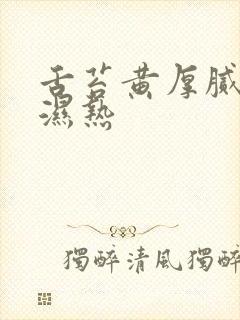 舌苔黄厚腻
濕熱
獨醉清風獨醉